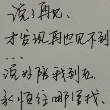 说了再见,
才发现再也见不到
...
说好陪我到老
永恒往哪里找